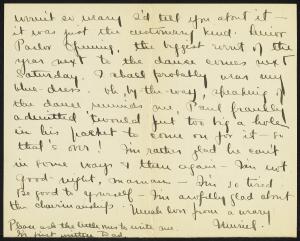 wasn't so weary I'd tell you about it —
it was just the customary kind. Junior
Parlor Opening, the biggest event of the
year next to the dance comes next
Saturday. I shall probably wear my
blue dress. Oh, by the way, speaking of
the dance reminds me, Paul frankly
admitted 'twould put too big a hole
in his pocket to come on for it — so
that's over! I'm rather glad he can't
in some ways & then again — I'm not
Good-night, maman — I'm so tired.
Be good to yourself. I'm awfully glad about
the chairmanship. Much love from a weary
Muriel.
Please ask the little one to write me.
for first written Dad.